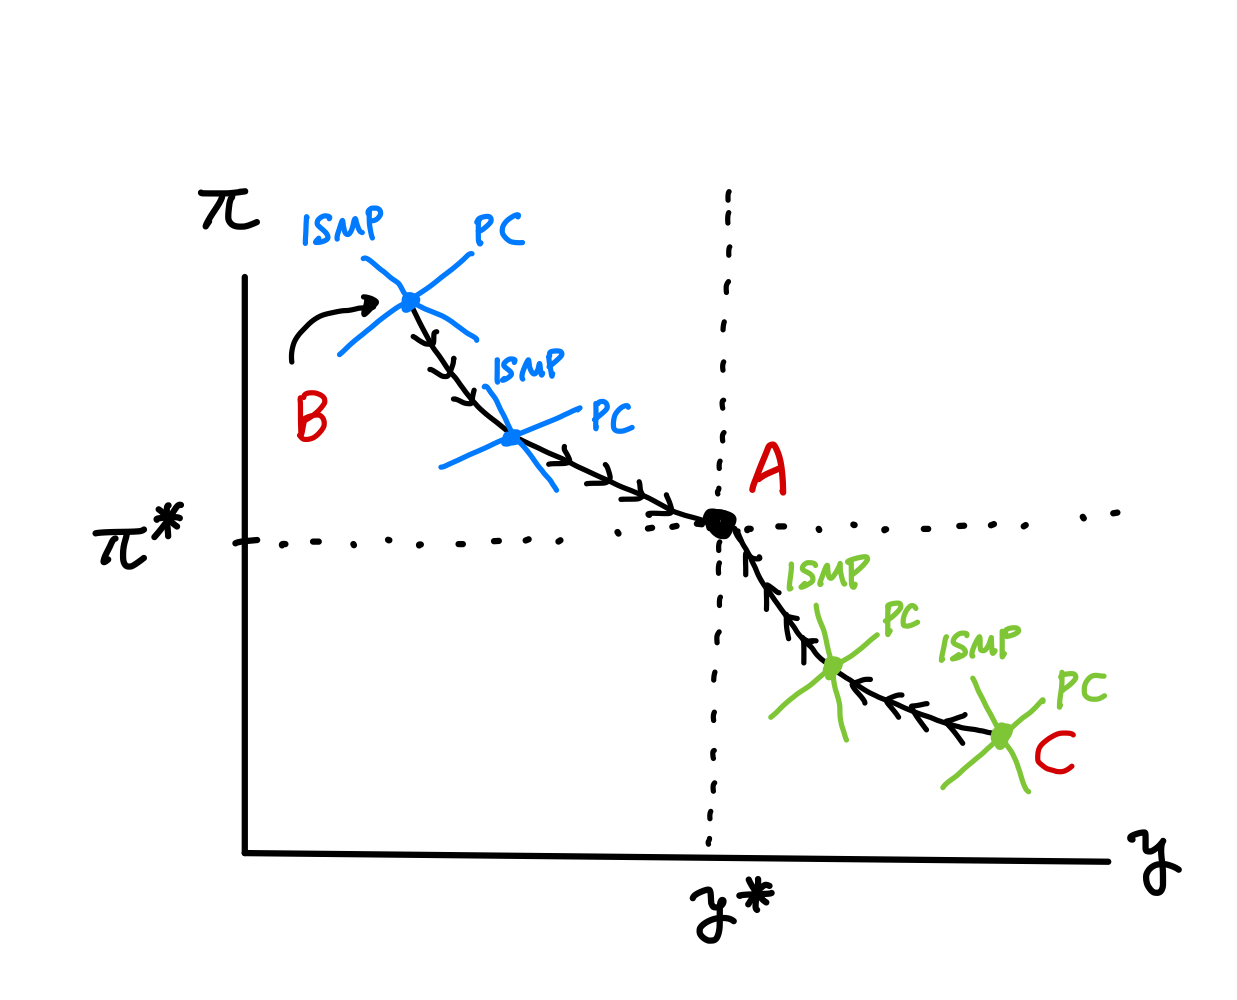 π
ISMP
PC
B
ISMP
PC
A
π*
ISMP
PC
ISMP
PC
C
y
y*